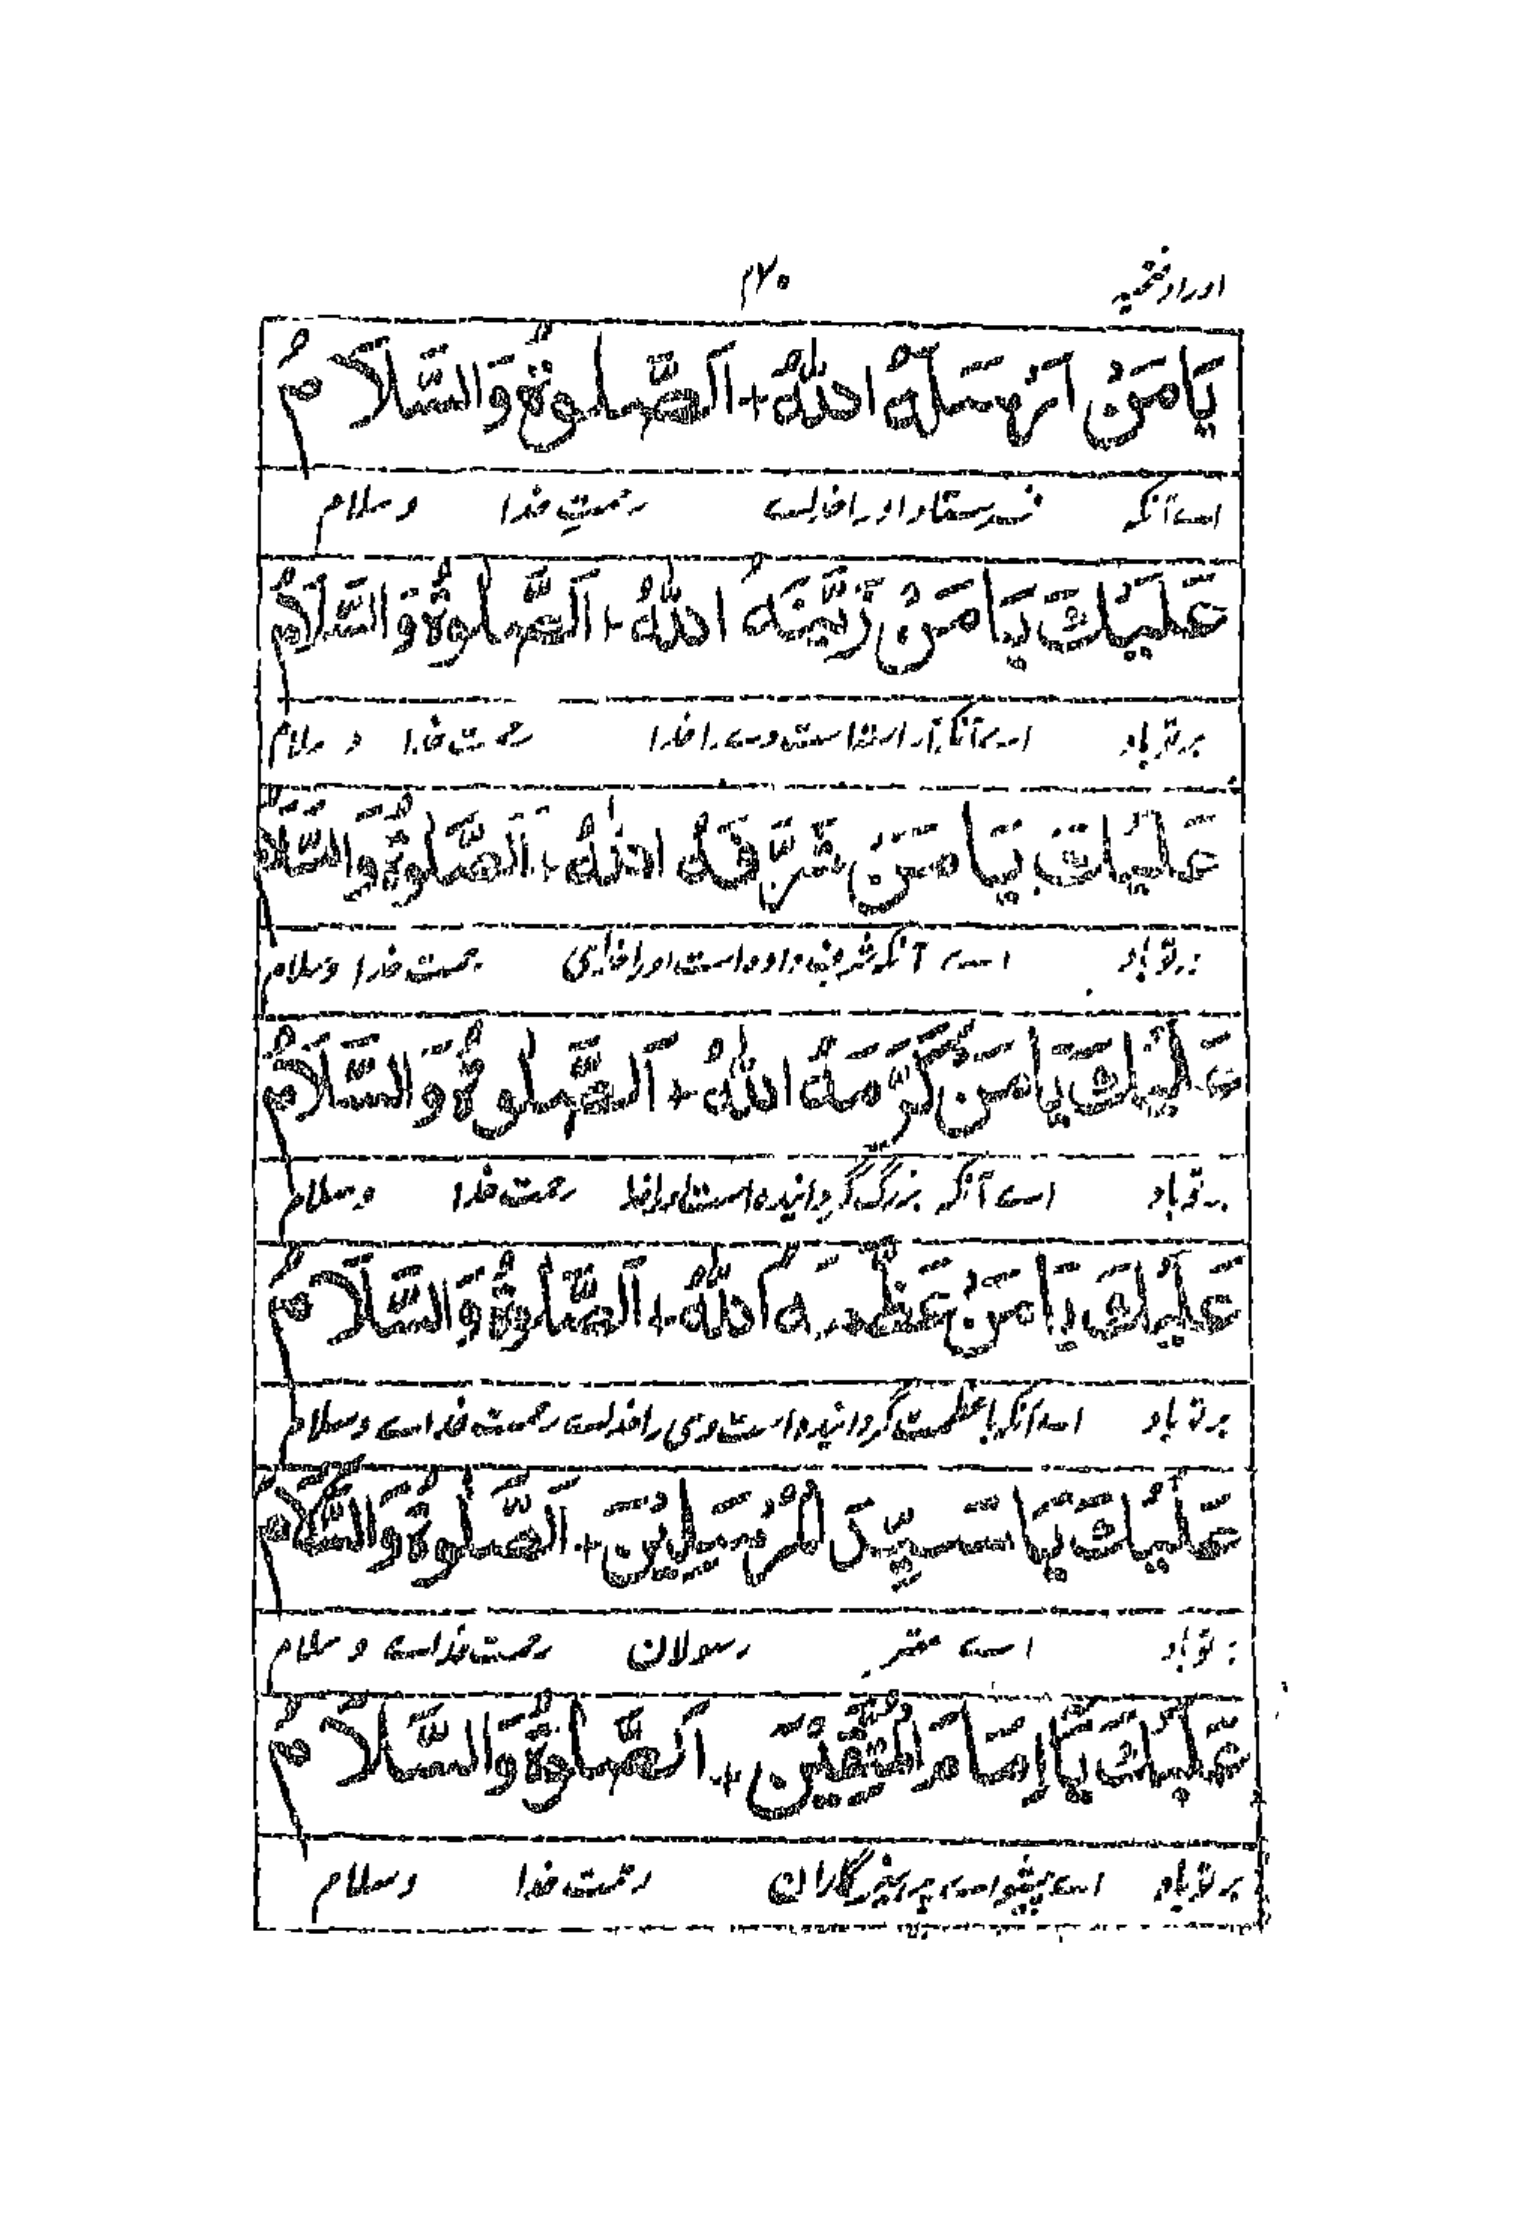 اوراد فتحیه
۴۷۰
یَا مَنْ اَرْسَلَهُ اللّٰهُ + اَلصَّلٰوةُ وَالسَّلَامُ
اے آنکہ فرستاد او را خدای رحمتِ خدا و سلام
عَلَیْكَ یَا مَنْ زَیَّنَهُ اللّٰهُ + اَلصَّلٰوةُ وَالسَّلَامُ
بر تو باد اے آنکہ آراستہ است وے را خدا رحمت خدا و سلام
عَلَیْكَ یَا مَنْ شَرَّفَهُ اللّٰهُ + اَلصَّلٰوةُ وَالسَّلَامُ
بر تو باد اے آنکہ شرف داده است او را خدای رحمت خدا و سلام
عَلَیْكَ یَا مَنْ كَرَّمَهُ اللّٰهُ + اَلصَّلٰوةُ وَالسَّلَامُ
بر تو باد اے آنکہ بزرگ گردانیده است او را خدا رحمت خدا و سلام
عَلَیْكَ یَا مَنْ عَظَّمَهُ اللّٰهُ + اَلصَّلٰوةُ وَالسَّلَامُ
بر تو باد اے آنکہ با عظمت گردانیده است وی را خدای رحمت خداے و سلام
عَلَیْكَ یَا سَیِّدَ الْمُرْسَلِیْنَ + اَلصَّلٰوةُ وَالسَّلَامُ
بر تو باد اے مهتر رسولان رحمت خداے و سلام
عَلَیْكَ یَا اِمَامَ الْمُتَّقِیْنَ + اَلصَّلٰوةُ وَالسَّلَامُ
بر تو باد اے پیشواے پرہیزگاران رحمت خدا و سلام